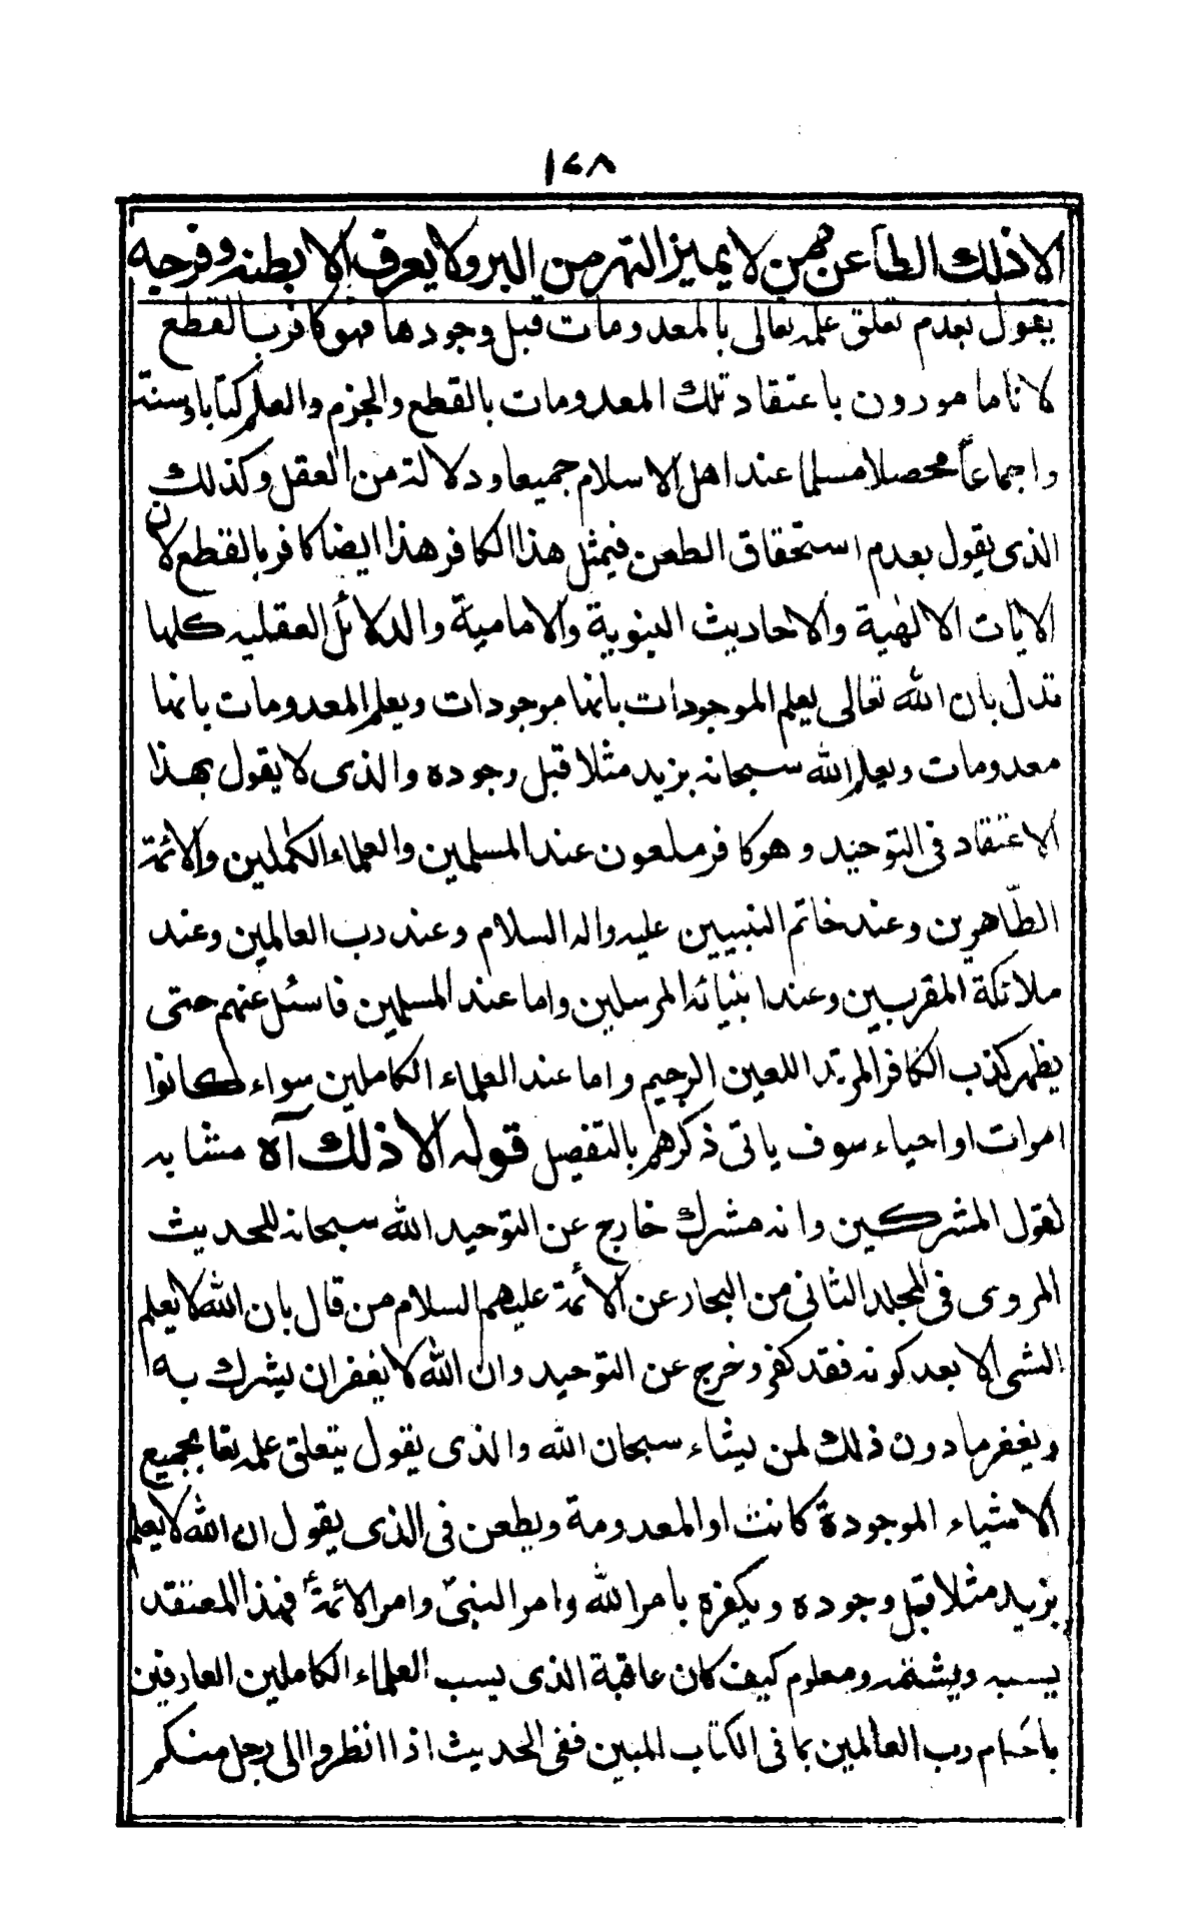 ١٤٨
الا ذلك الطاعن فهمن لا يميز التهر من البر ولا يعرف الا بطنه وفرجه
يقول بعدم تعلق علمه تعالى بالمعدومات قبل وجودها فهو كافر بالقطع
لانا مامورون باعتقاد تلك المعدومات بالقطع والجزم والعلم كتابا وسنة
واجماعاً محصلا مسلما عند اهل الاسلام جميعا ودلالة من العقل وكذلك
الذى يقول بعدم استحقاق الطعن فيمثل هذا الكافر هذا ايضا كافر بالقطع لان
الايات الالهية والاحاديث النبوية والامامية والدلائل العقليه كلها
تدل بان الله تعالى يعلم الموجودات بانها موجودات ويعلم المعدومات بانها
معدومات ويعلم الله سبحانه بزيد مثلا قبل وجوده والذى لا يقول بهذا
الاعتقاد فى التوحيد وهو كافر ملعون عند المسلمين والعلماء الكملين والائمة
الطّاهرين وعند خاتم النبيين عليه واله السلام وعند رب العالمين وعند
ملائكة المقربين وعند انبيائه المرسلين واما عند المسلمين فاسئل عنهم حتى
يظهر كذب الكافر المرتد اللعين الرجيم واما عند العلماء الكاملين سواء كانوا
اموات او احياء سوف ياتى ذكرهم بالتفصل قوله الا ذلك آه مشابه
لقول المشركين وانه مشرك خارج عن التوحيد الله سبحانه للحديث
المروى فى المجلد الثانى من البحار عن الائمة عليهم السلام من قال بان الله لا يعلم
الشى الا بعد كونه فقد كفر وخرج عن التوحيد وان الله لا يغفر ان يشرك به
ويغفر مادون ذلك لمن يشاء سبحان الله والذى يقول يتعلق علمه تعا بجميع
الاشياء الموجودة كانت او المعدومة ويطعن فى الذى يقول ان الله لا يعلم
بزيد مثلا قبل وجوده ويكفره بامر الله وامر النبىّ وامر الائمةّ فهذا المعتقد
يسبه ويشتمه ومعلوم كيف كان عاقبة الذى يسب العلماء الكاملين العارفين
باحكام رب العالمين بما فى الكتاب المبين ففى الحديث اذا انظروا الى رجل منكم